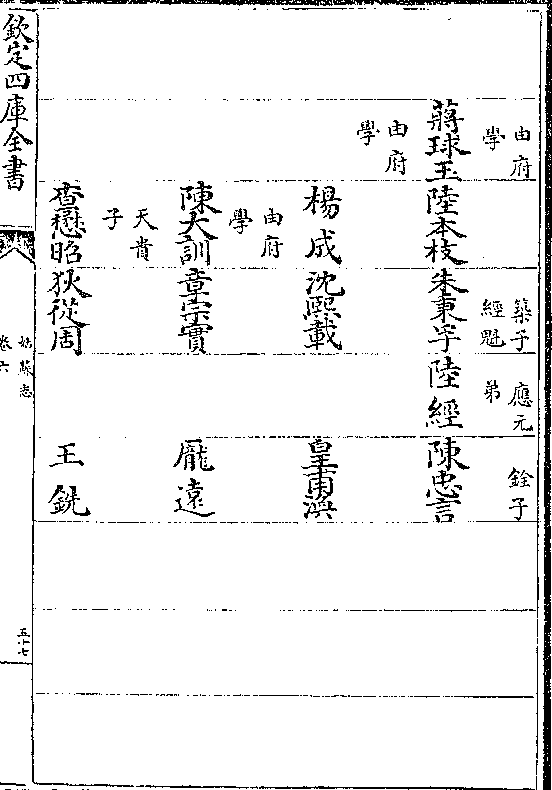 由府 築子 應元 銓子
學 經魁 弟
蔣球玉 陸本枝 朱秉孚 陸經 陳忠言
由府
學
楊成 沈熙載 皇甫渙
由府
學
陳大訓 章宗實 龎遠
天貴
子
查懋昭 狄從周 王銑
欽定四庫全書
姑蘇志
卷六
五十七